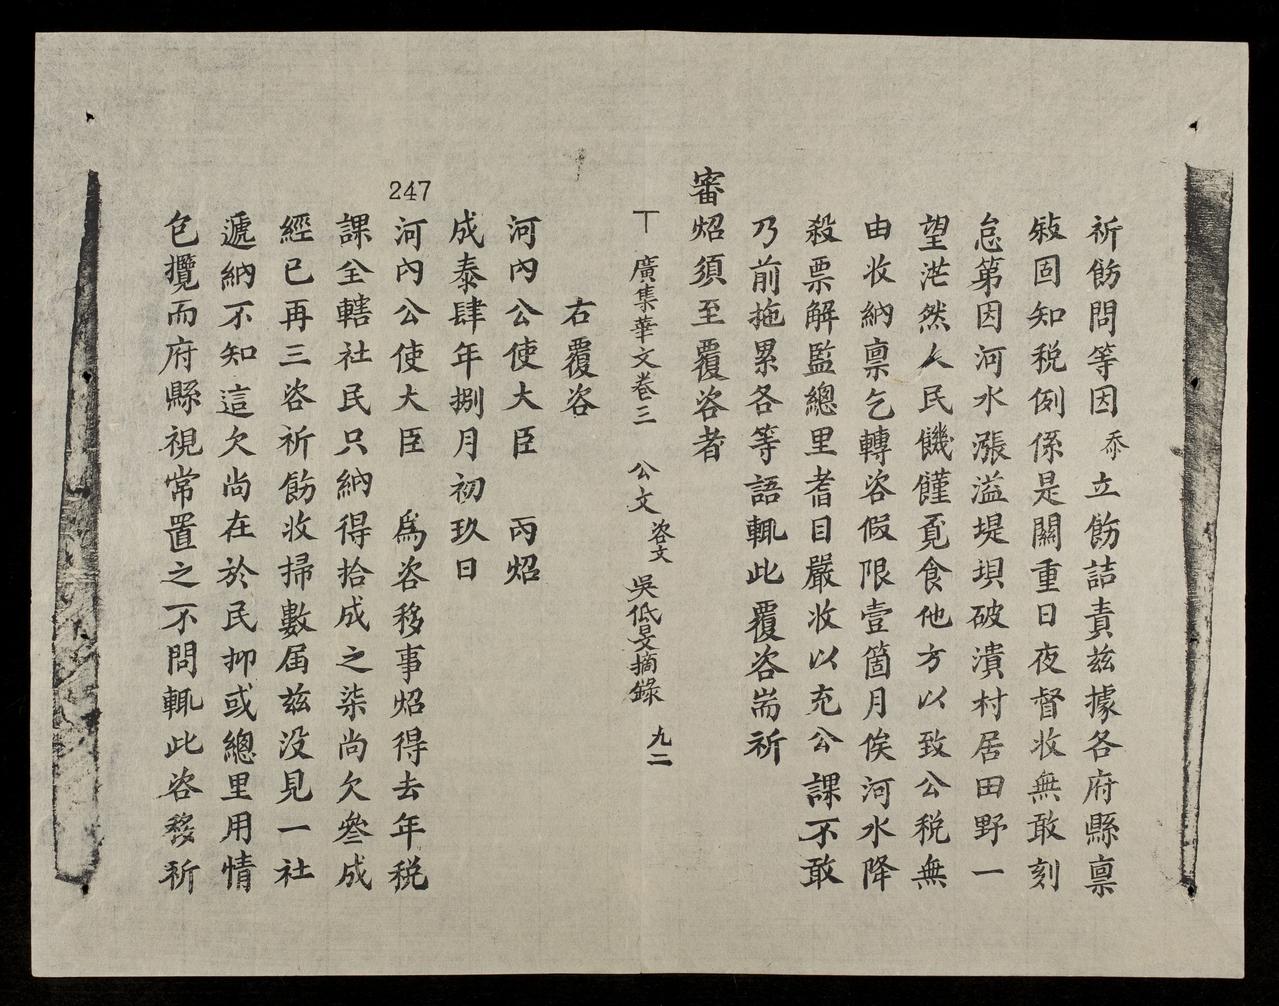 祈飭問等因忝立飭詰責茲據各府縣禀
敍固知税例係是關重日夜督收無敢刻
怠第因河水漲溢堤垻破潰村居田野一
望茫然人民饑饉覓食他方以致公税無
由收納禀乞轉咨假限壹箇月俟河水降
殺票解監總里耆目嚴收以充公課不敢
乃前拖累各等語輒此覆咨耑祈
審炤須至覆咨者
丅 廣集華文卷三 公文 咨文 吳低旻摘錄 九二
右覆咨
河內公使大臣 丙炤
成泰肆年捌月初玖日
247
河內公使大臣 爲咨移事炤得去年税
課全轄社民只納得拾成之柒尚欠叄成
經已再三咨祈飭收掃數届茲没見一社
遞納不知這欠尚在於民抑或總里用情
包攬而府縣視常置之不問輒此咨移祈